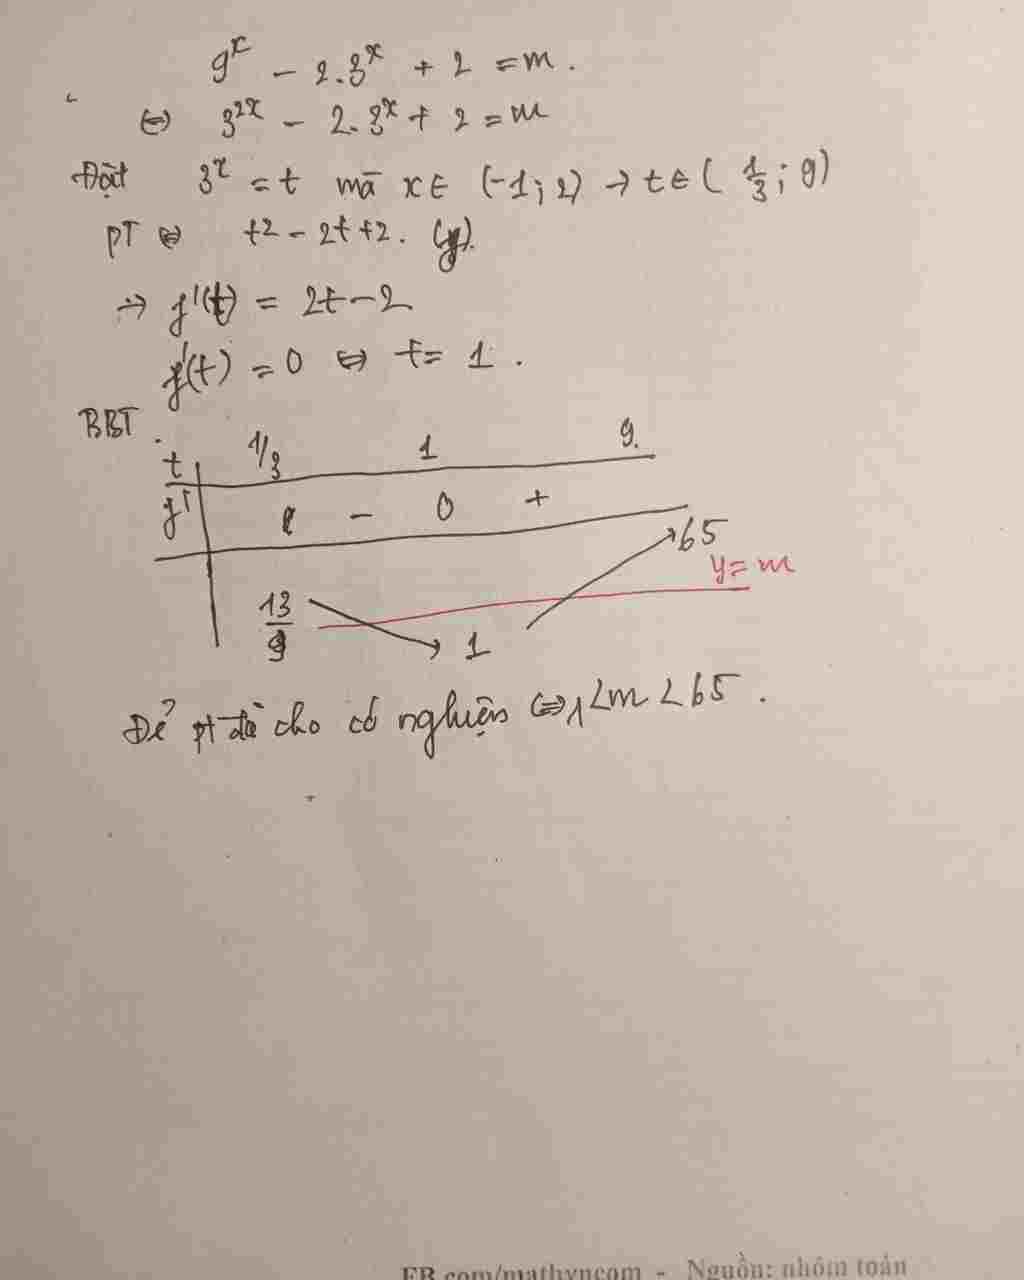 9ˣ - 2.3ˣ + 2 = m.
⇔ 3²ˣ - 2.3ˣ + 2 = m
Đặt 3ˣ = t mà x∈ (-1;2) → t∈ (1/3; 9)
PT ⇔ t² - 2t + 2. (y).
→ y'(t) = 2t - 2
y'(t) = 0 ⇔ t = 1.
BBT.
t 1/3 1 9.
y' - 0 +
65
y = m
13/9 1
Để pt đã cho có nghiện ⇔ 1 < m < 65.
FB.com/mathvncom - Nguồn: nhóm toán